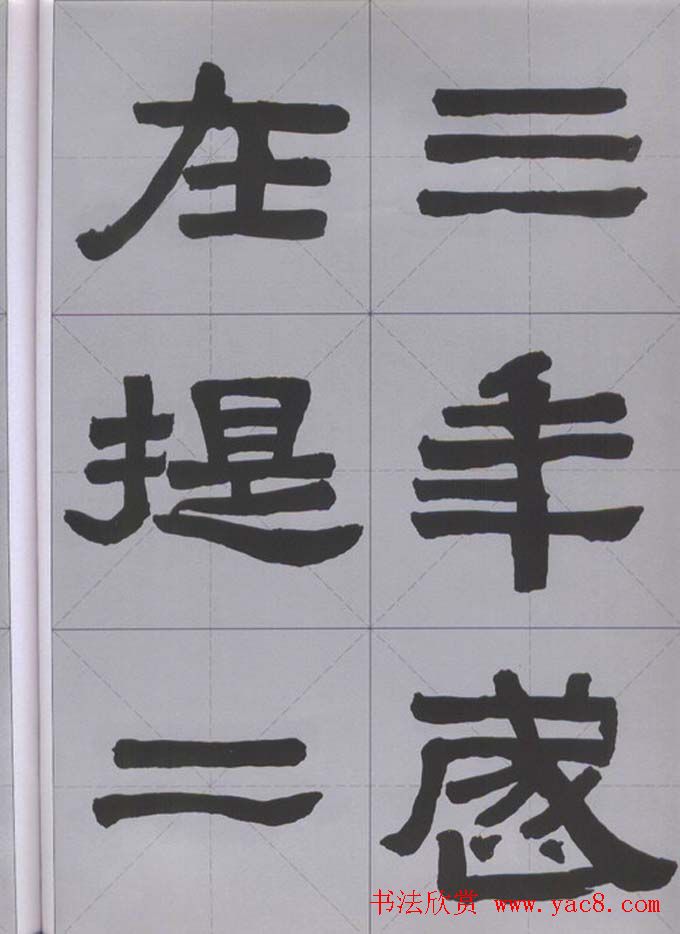 三年感
在提二
书法欣赏 www.yac8.com